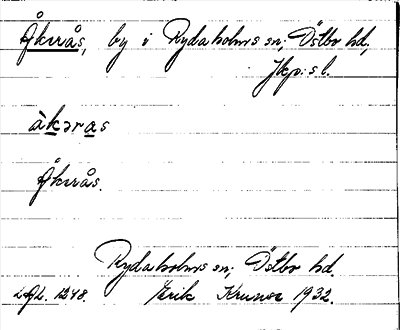 Åkrrås, by i Rydaholms sn; Östbo hd,
Jkp:s l.
àkəras
Åkrrås.
Rydaholms sn; Östbo hd.
1248. Erik Kruuse 1932.